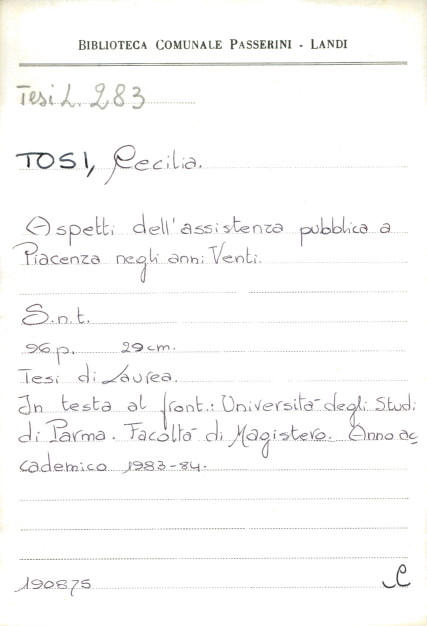 BIBLIOTECA COMUNALE PASSERINI - LANDI
Tesi L. 283
TOSI, Cecilia.
Aspetti dell'assistenza pubblica a
Piacenza negli anni Venti.
S.n.t.
96 p. 29 cm.
Tesi di Laurea.
In testa al front.: Università degli Studi
di Parma. Facoltà di Magistero. Anno ac
cademico 1983-84.
190875